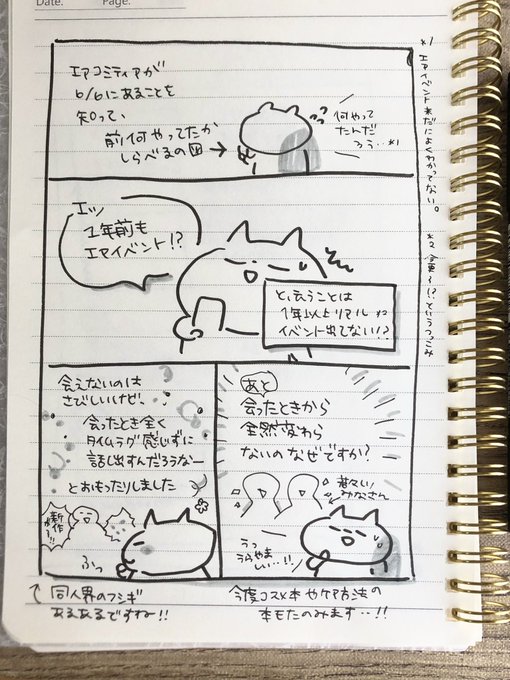 Date: Page:
エアコミティアが
6/6にあることを
知って、
前何やってたか
しらべるの図→
何やって
たんだ
ろう…*1
*1 エアイベント未だによくわかってない。
エッ
1年前も
エアイベント!?
と、云うことは
1年以上リアル *2
イベント出てない!?
*2 今更!?というつっこみ
あと
会ったときから
全然変わら
ないのなぜですか?
若々しい
みなさん
うっ
うらやま
しい…!!
会えないのは
さびしいけど、
会ったとき全く
タイムラグ感じずに
話し出すんだろうなー
とおもったりしました
新作
が!!
ふっ
↑同人界のフシギ
あるあるですね!!
今度コスメ本やケア方法の
本もたのみます…!!